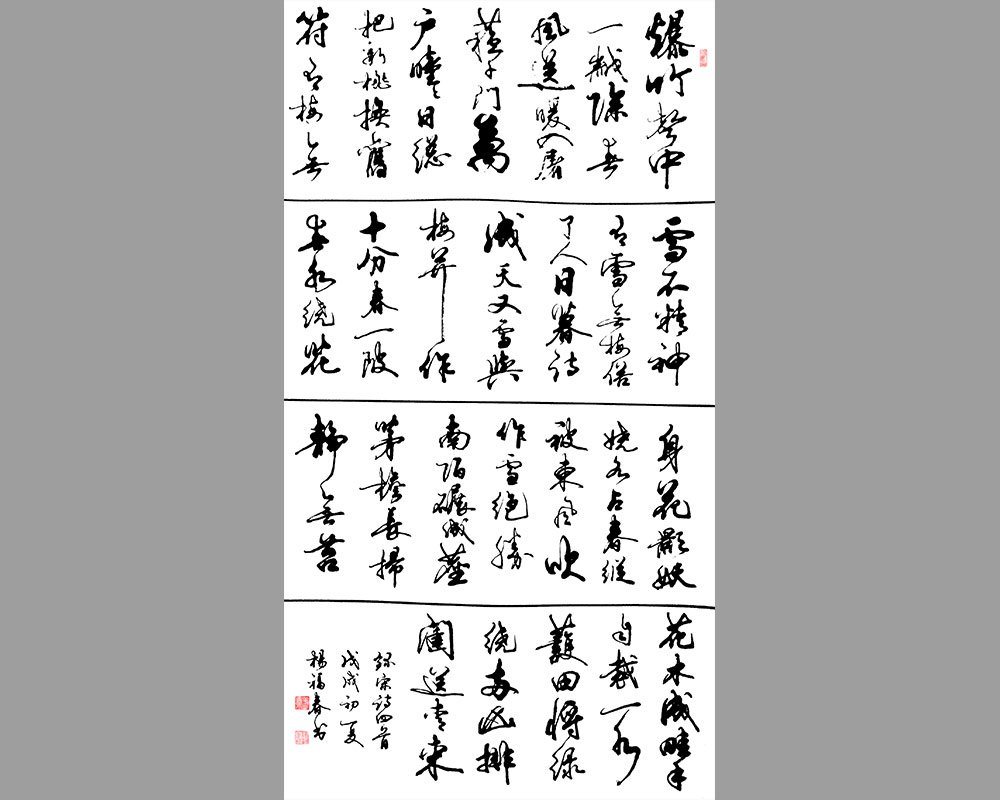 爆竹聲中
一歲除春
風送暖入屠
蘇千門萬
户曈々日總
把新桃換舊
符有梅無
雪不精神
有雪無梅俗
了人日暮詩
成天又雪與
梅并作
十分春一陂
春水繞花
身花影妖
嬈各占春縱
被東風吹
作雪絕勝
南陌碾成塵
茅檐長掃
靜無苔
花木成畦手
自栽一水
護田將綠
繞兩山排
闥送青來
錄宋詩四首
戊戌初夏
楊福春书